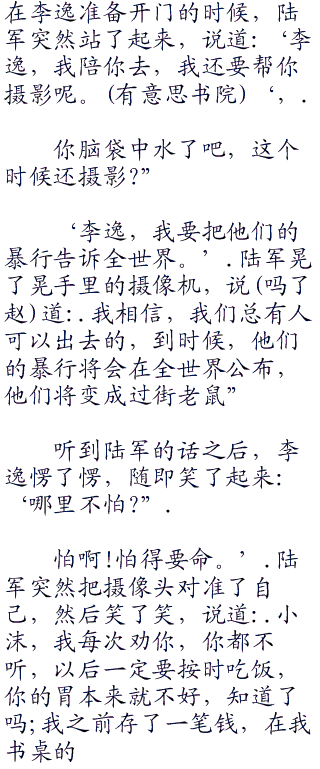 在李逸准备开门的时候，陆
军突然站了起来，说道:‘李
逸，我陪你去，我还要帮你
摄影呢。(有意思书院)‘，.
你脑袋中水了吧，这个
时候还摄影?”
‘李逸，我要把他们的
暴行告诉全世界。’.陆军晃
了晃手里的摄像机，说(吗了
赵)道:.我相信，我们总有人
可以出去的，到时候，他们
的暴行将会在全世界公布，
他们将变成过街老鼠”
听到陆军的话之后，李
逸愣了愣，随即笑了起来:
‘哪里不怕?”.
怕啊!怕得要命。’.陆
军突然把摄像头对准了自
己，然后笑了笑，说道:.小
沫，我每次劝你，你都不
听，以后一定要按时吃饭，
你的胃本来就不好，知道了
吗;我之前存了一笔钱，在我
书桌的